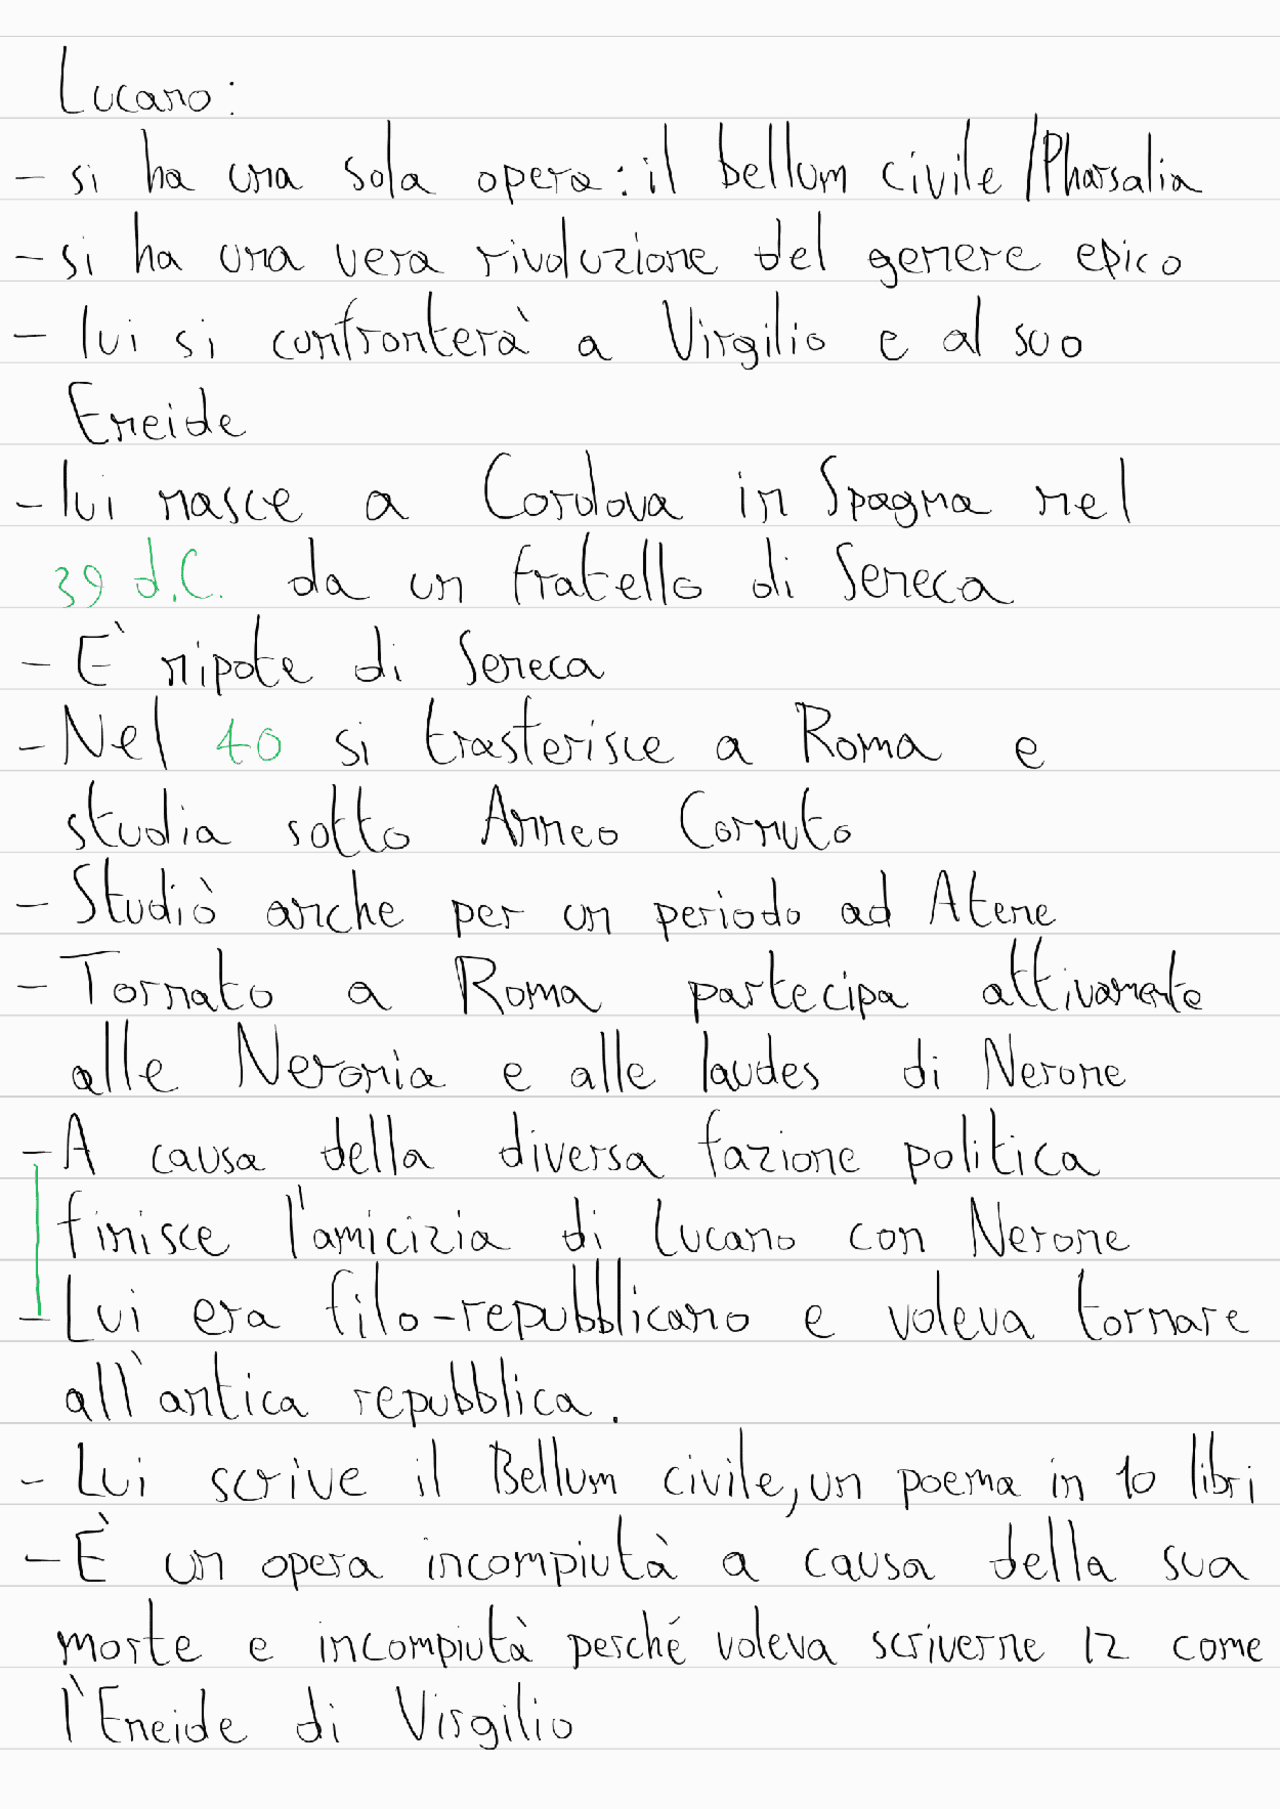 Lucano:
- si ha una sola opera: il bellum civile/Pharsalia
- si ha una vera rivoluzione del genere epico
- lui si confronterà a Virgilio e al suo
Eneide
- lui nasce a Cordova in Spagna nel
39 d.C. da un fratello di Seneca
- E` nipote di Seneca
- Nel 40 si trasferisce a Roma e
studia sotto Anneo Cornuto
- Studiò anche per un periodo ad Atene
- Tornato a Roma partecipa attivamente
alle Neronia e alle laudes di Nerone
- A causa della diversa fazione politica
finisce l'amicizia di Lucano con Nerone
- Lui era filo-repubblicano e voleva tornare
all'antica repubblica.
- Lui scrive il Bellum civile, un poema in 10 libri
- È un opera incompiutà a causa della sua
morte e incompiutà perché voleva scriverne 12 come
l'Eneide di Virgilio